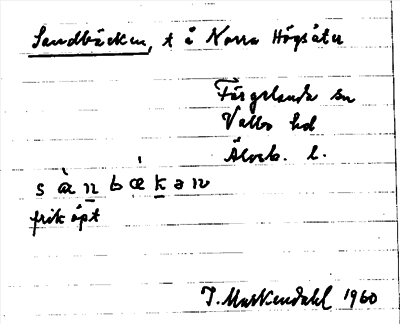 Sandbäcken, t å Norra Högsäter
Färgelanda sn
Valbo hd
Älvsb. l.
sànbǽkən
frik öpt
J. Markendahl 1960